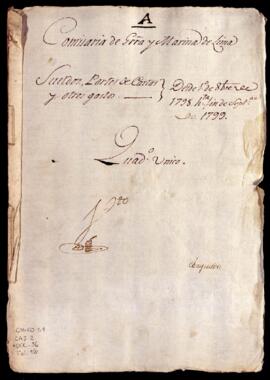 A
Comisaria de Grra y Marina de Lima
Sueldos, Portes de Cartas
y otros gastos
Desde 1º de 8bre de
1798 hta fin de Sepre
de 1799.
Quadº Unico.
CAJ 2